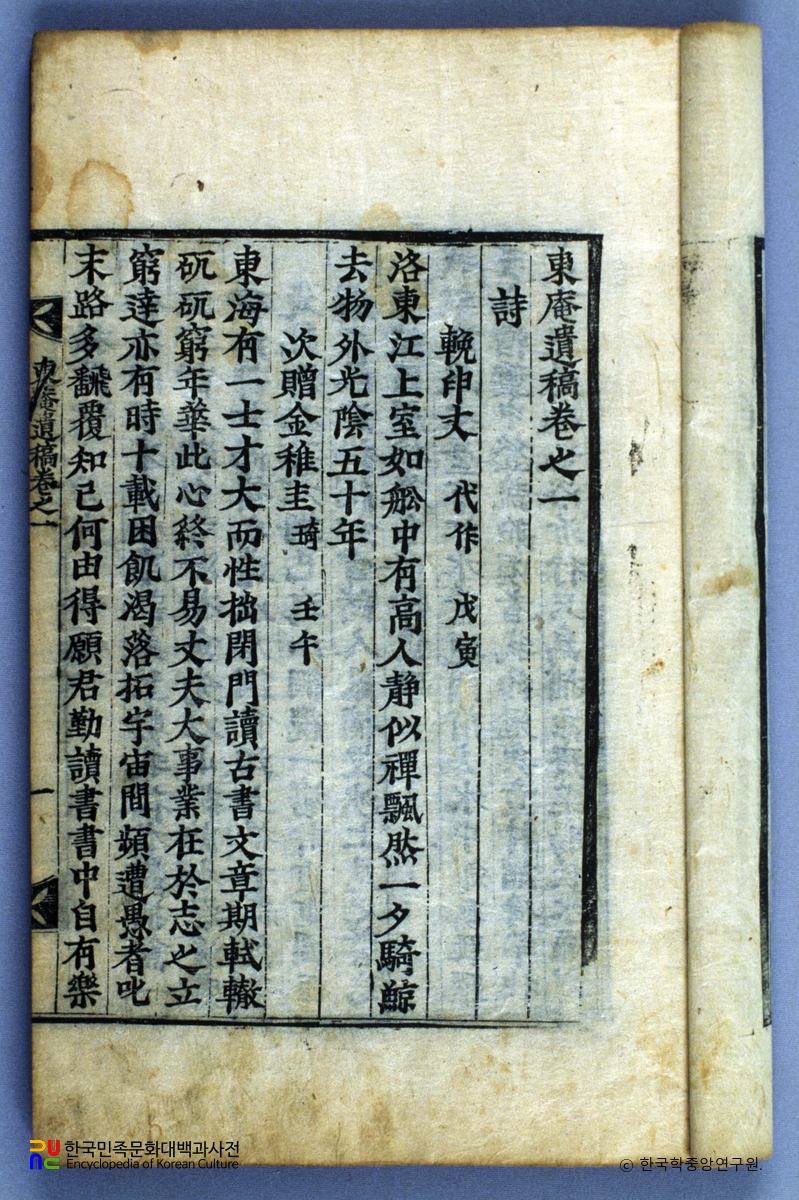 東庵遺稿卷之一
詩
輓印丈 代作 戊寅
洛東江上室如舩中有高人靜似禪飄然一夕騎鯨
去物外光陰五十年
次贈金稚圭琦 壬午
東海有一士才大而性拙閉門讀古書文章期軾轍
矹矹窮年華此心終不易丈夫大事業在於志之立
窮達亦有時十載困飢渴落拓宇宙間頻遭愚者叱
末路多飜覆知己何由得願君勤讀書書中自有樂
東庵遺稿卷之一
一
한국민족문화대백과사전
Encyclopedia of Korean Culture
© 한국학중앙연구원.